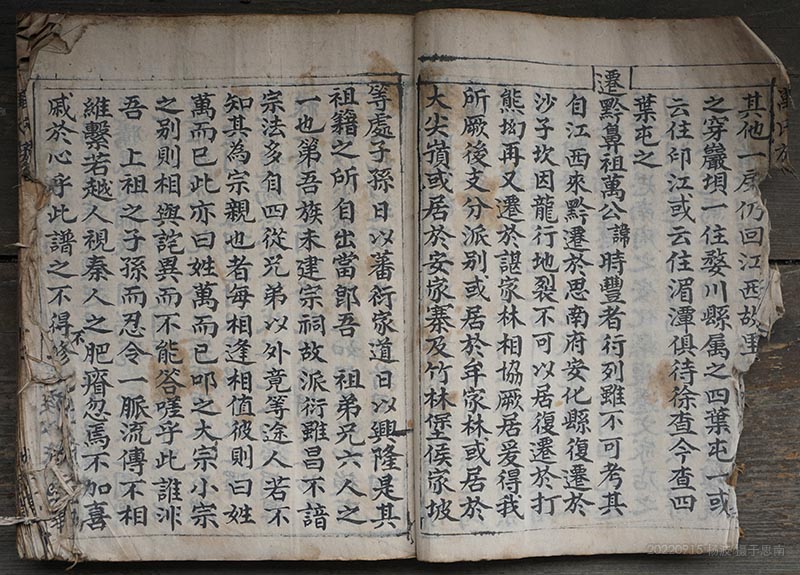 其他一房仍回江西故里
之穿巖垻一住婺川縣属之四葉屯一或
云住卭江或云住湄潭俱待徐查今查四
葉屯之
遷黔鼻祖萬公諱時豐者行列雖不可考其
自江西來黔遷於思南府安化縣復遷於
沙子坎因龍行地裂不可以居復遷於打
熊坳再又遷於諶家林相協厥居爰得我
所厥後支分派别或居於年家林或居於
大尖嶺或居於安家寨及竹林堡侯家坡
等處子孫日以蕃衍家道日以興隆是其
祖籍之所自出當郎吾 祖弟兄六人之
一也第吾族未建宗祠故派衍雖昌不諳
宗法多自四從兄弟以外竟等途人若不
知其為宗親也者每相逢相值彼則曰姓
萬而已此亦曰姓萬而已叩之大宗小宗
之别則相與詫異而不能答嗟乎此誰非
吾 上祖之子孫而忍令一脈流傳不相
維繫若越人視秦人之肥瘠忽焉不加喜
戚於心乎此譜之不得不修
20220915 杨波 摄于思南